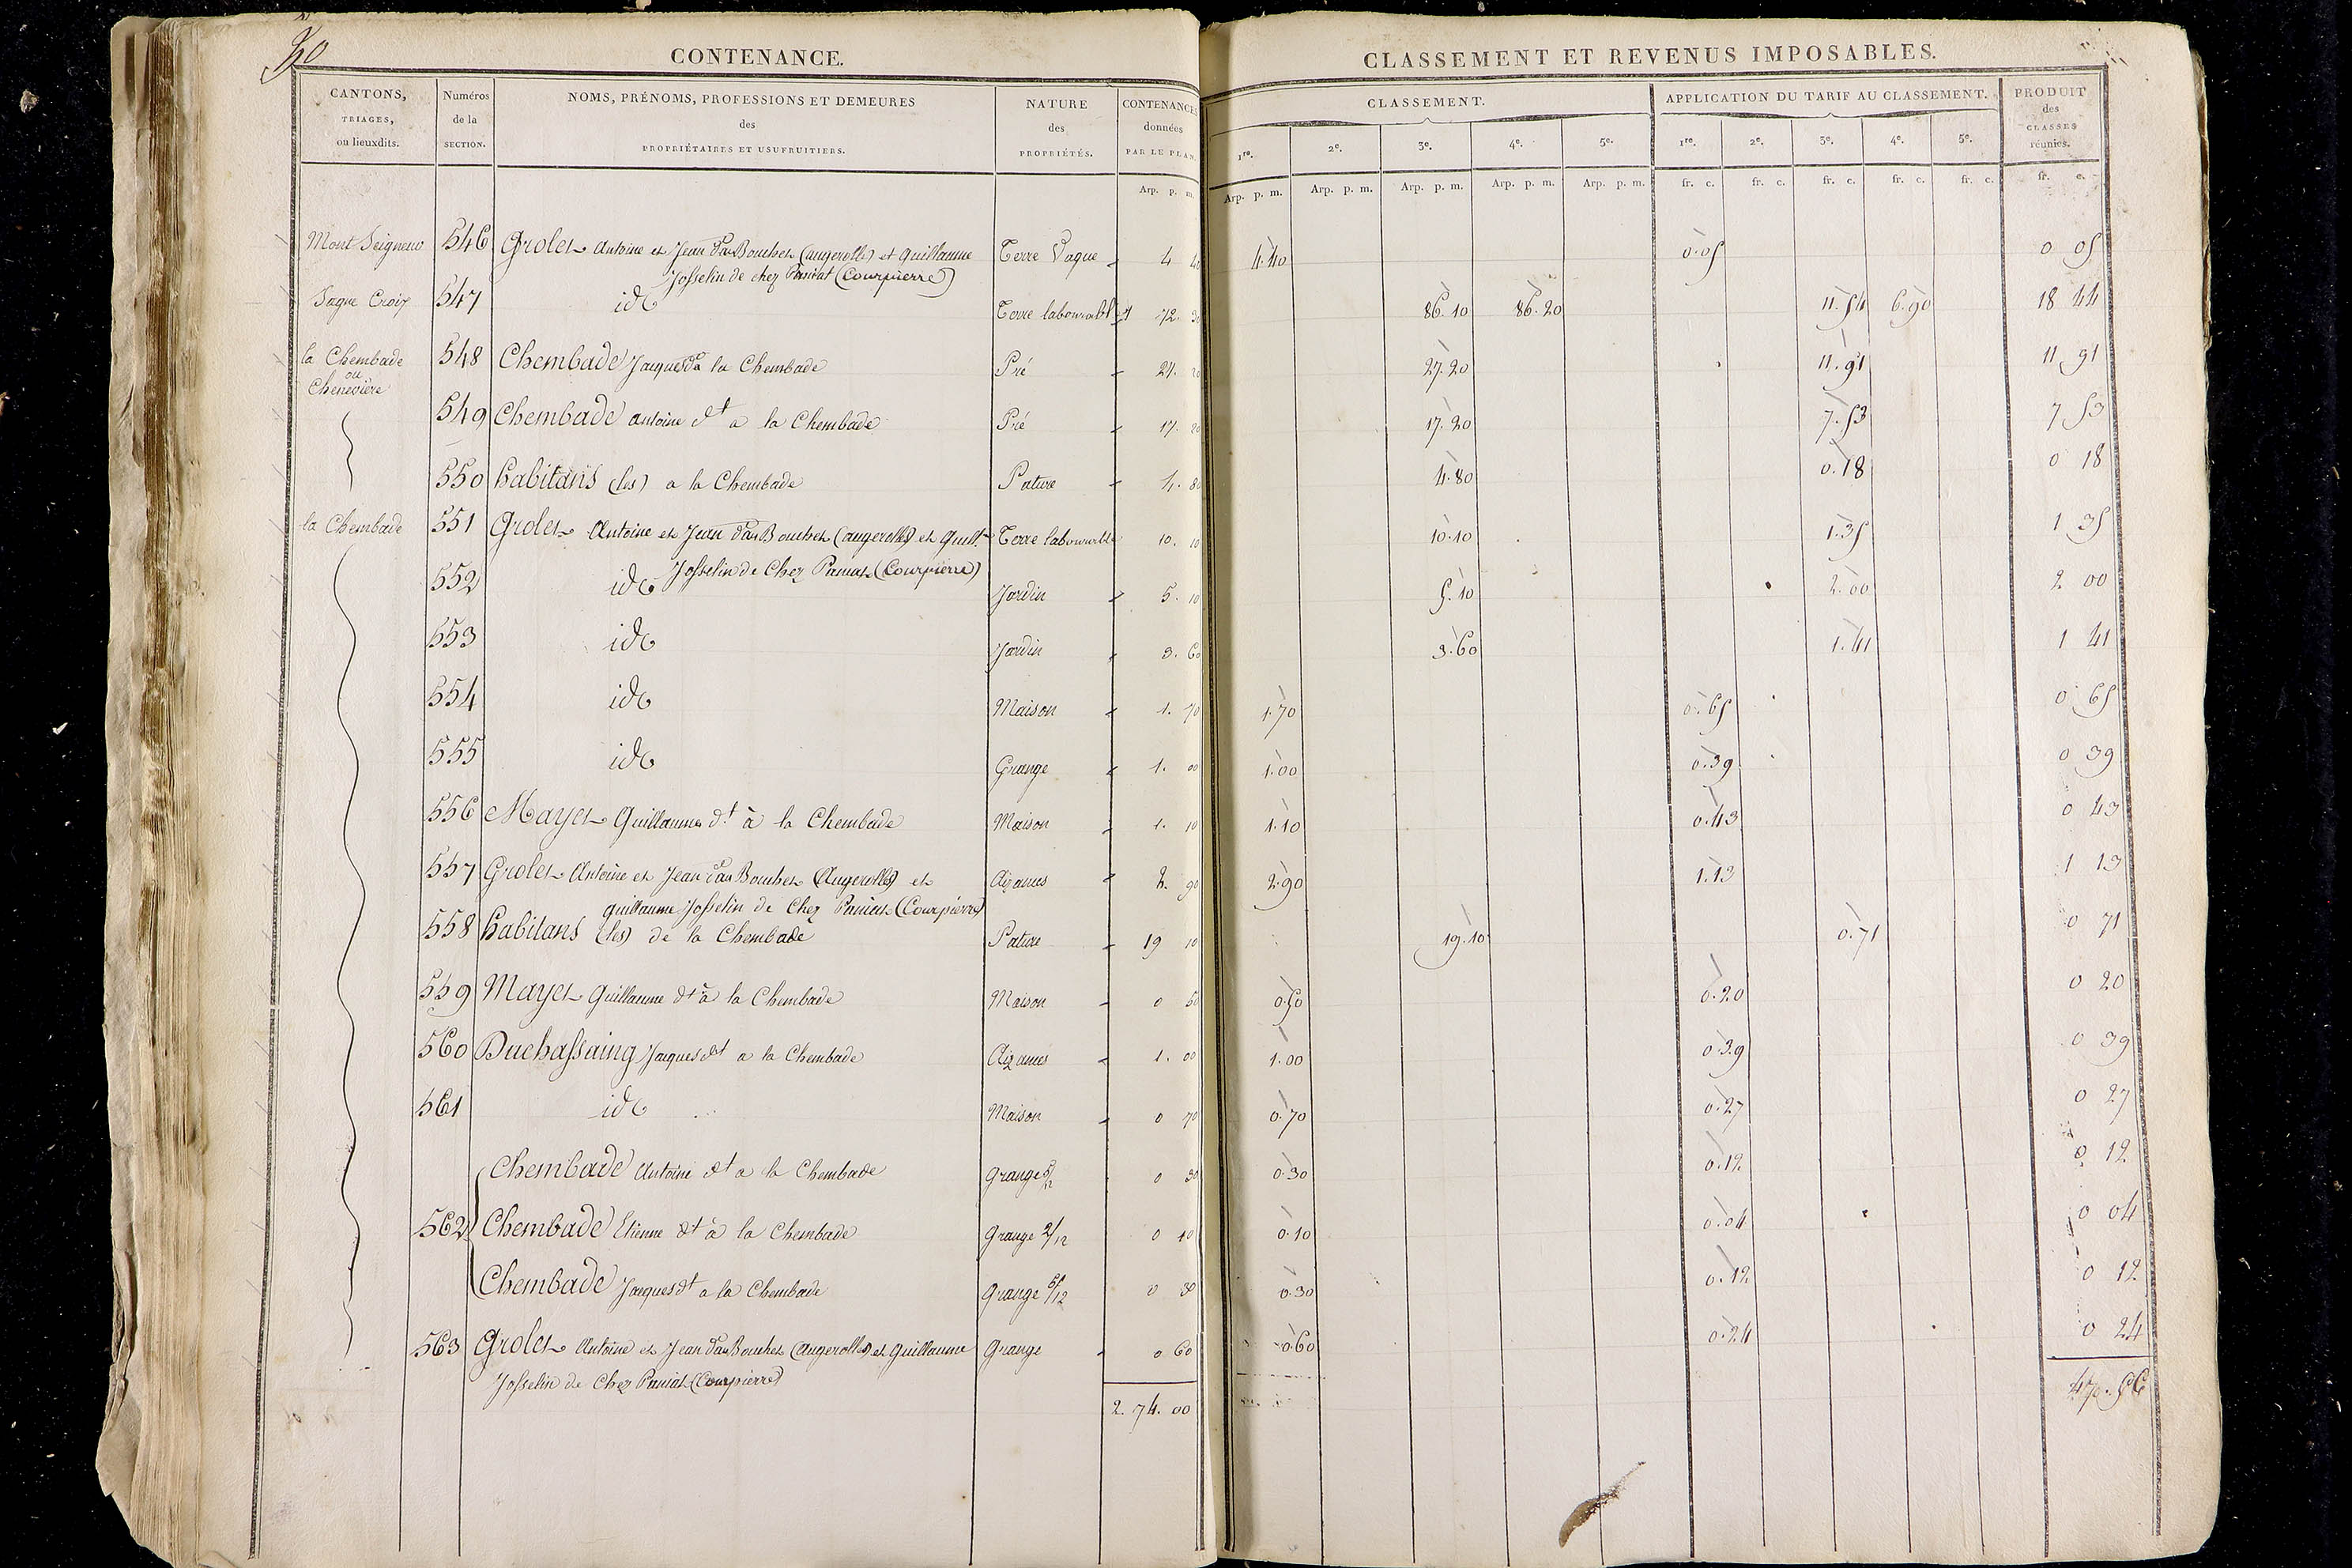 CONTENANCE.
CLASSEMENT ET REVENUS IMPOSABLES.
CANTONS, TRIAGES, ou lieuxdits.
Numéros de la SECTION.
NOMS, PRÉNOMS, PROFESSIONS ET DEMEURES des PROPRIÉTAIRES ET USUFRUITIERS.
NATURE des PROPRIÉTÉS.
CONTENANCES données PAR LE PLAN.
CLASSEMENT.
APPLICATION DU TARIF AU CLASSEMENT.
PRODUIT des CLASSES réunies.
1re. 2e. 3e. 4e. 5e. 1re. 2e. 3e. 4e. 5e.
Arp. p. m. Arp. p. m. Arp. p. m. Arp. p. m. Arp. p. m. Arp. p. m. fr. c. fr. c. fr. c. fr. c. fr. c. fr. c.
Mont Seigneur 546 Grolet Antoine et Jean d. au Bouchet (augerolle) et Guillaume Terre Vague 4 40 4.40 0.05 0 05
Josselin de chez Paniat (Courpierre)
547 id Terre labourable 1 72. 30 86.10 86.20 11.54 6.90 18 44
la Chembade 548 Chembade Jacques dt a la Chembade Pré 27. 20 27.20 11.91 11 91
ou
Cheneviere
549 Chembade antoine dt a la Chembade Pré 17. 20 17.20 7.53 7 53
550 habitans (les) a la Chembade Pature 4. 80 4.80 0.18 0 18
la Chembade 551 Grolet Antoine et Jean d. au Bouchet (augerolle) et Guill. Terre labourable 10. 10 10.10 1.35 1 35
Josselin de Chez Paniat (Courpierre)
552 id Jardin 5. 10 5.10 2.00 2 00
553 id Jardin 3. 60 3.60 1.41 1 41
554 id Maison 1. 70 1.70 0.65 0 65
555 id Grange 1. 00 1.00 0.39 0 39
556 Mayet Guillaume dt à la Chembade Maison 1. 10 1.10 0.43 0 43
557 Grolet Antoine et Jean d. au Bouchet (Augerolle) et Aizances 2. 90 2.90 1.13 1 13
guillaume Josselin de Chez Paniat (Courpierre)
558 habitans (les) de la Chembade Pature 19 10 19.10 0.71 0 71
559 Mayet Guillaume dt à la Chembade Maison 0 50 0.50 0.20 0 20
560 Duchassaing Jaques dt a la Chembade Aizances 1. 00 1.00 0.39 0 39
561 id Maison 0 70 0.70 0.27 0 27
Chembade Antoine dt a la Chembade Grange 5/12 0 30 0.30 0.12 0 12
562 Chembade Etienne dt à la Chembade Grange 2/12 0 10 0.10 0.04 0 04
Chembade Jacques dt a la Chembade Grange 5/12 0 30 0.30 0.12 0 12
563 Grolet Antoine et Jean d. au Bouchet (Augerolle) et Guillaume Grange 0 60 0.60 0.24 0 24
Josselin de Chez Paniat (Courpierre)
2. 74. 00 47.56